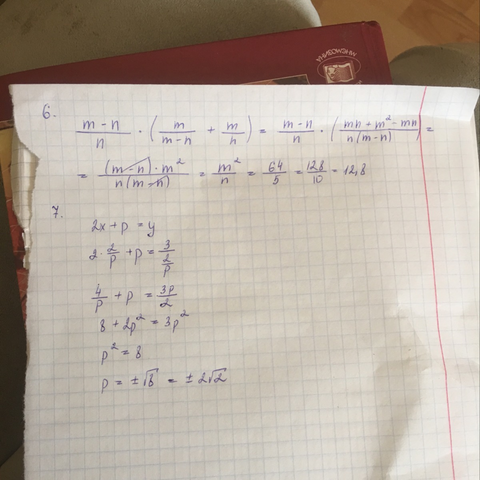 МНЕМОЗИНА
6.
\frac{m-n}{n} · (\frac{m}{m-n} + \frac{m}{n}) = \frac{m-n}{n} · (\frac{mn+m^2-mn}{n(m-n)}) =
= \frac{(m-n)·m^2}{n(m-n)} = \frac{m^2}{n} = \frac{64}{5} = \frac{128}{10} = 12,8
7.
2x+p = y
2·\frac{2}{p} + p = \frac{3}{\frac{2}{p}}
\frac{4}{p} + p = \frac{3p}{2}
8 + 2p^2 = 3p^2
p^2 = 8
p = ±√8 = ±2√2